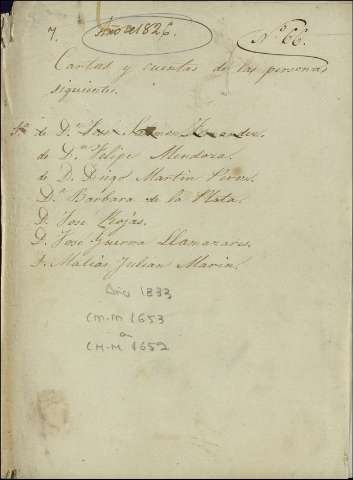 7. Año de 1826. Nº 66.
Cartas y cuentas de las personas
siguientes.
de D.ⁿ José Hernandez.
de D.ⁿ Felipe Mendoza.
de D. Diego Martin Perez.
D.ª Barbara de la Plata.
D. José Rojas.
D. José Guerra Llamazares.
D. Matias Julian Marin.
Año 1833
CM-M 1653
a
CM-M 1652